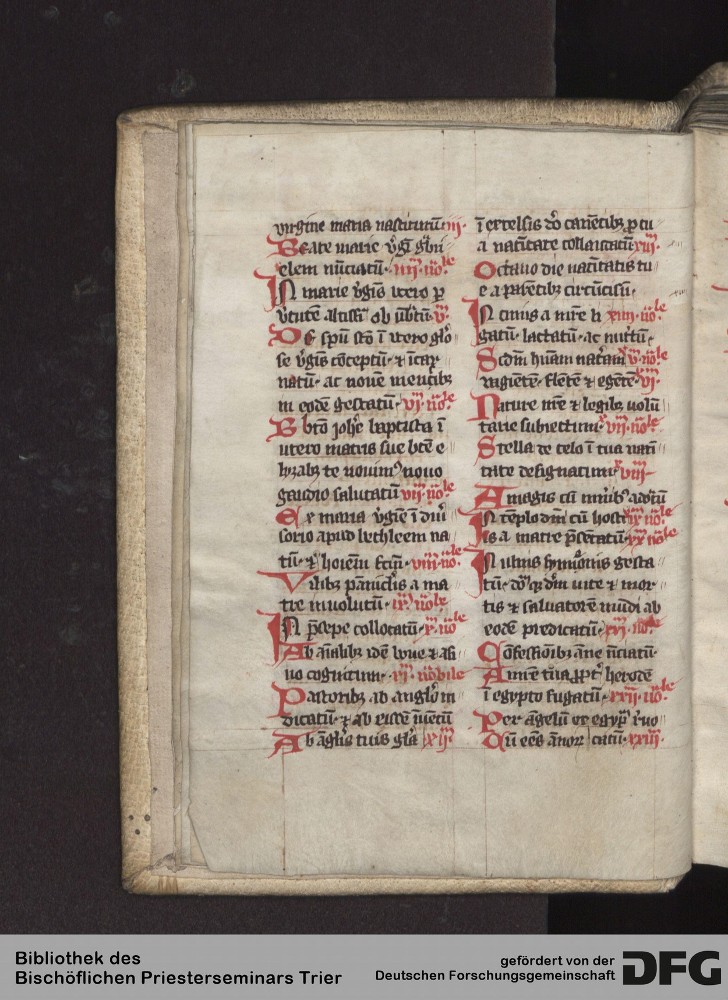 virgine maria nasciturū iij.
Beate marie v̄gī gͣbri
elem nūciatū. iiij. nō le
IN marie v̄gīs vtero p
v̄tutē altissī ob ūbtū v.
De spū sc̄o ī vtero glō
se v̄gīs cōceptū. ⁊ īcar
natū. ac nouē mensibꝫ
in eodē gestatū. vj. nō le
B btō joh̄e baptista ī
vtero matris sue btē e
lyzabꝫ te nouim⁹ nouo
gaudio salutatū vij. nō le
Ex maria v̄gīe ī diu̾
sorio apud bethleem na
tū. ⁊ hoiem fc̄m. viij. nō.
Vilibꝫ pāniclis a ma
tre inuolutū. ix. nō le
IN p̄sepe collocatū. x. nō
Ab aīalibꝫ idē boue ⁊ asi
no cognitum. xi. nobile
Pastoribꝫ ab anglō in
dicatū. ⁊ ab eisdē īuētū
Ab āglis tuis glā xij.
ī excelsis dō canētibꝫ ꝓ tu
a natītate collaudatū xiij.
Octauo die natītatis tu
e a parētibꝫ circūcisū.
IN cunis a mr̄e li xiiij. nō le
gatū. lactatū. ac nutͥtū.
Scdm hūam natͣam xv. nō le
vagiētē. flētē ⁊ egētē xvj.
Nature nr̄e ⁊ legibꝫ volū
tarie subiectum. xvij. nō le
Stella de celo ī tua natī
tate designatum. xviij
A magis cū mn̄ibꝰ adōtū
IN tēplo dm̄ cū hostiis xix. nō le
is a matre p̄sētatū. xx nō le
IN vlnis symōnis gesta
tū. dm̄ vite ⁊ mor
tis ⁊ saluatorē mūdi ab
eodē predicatū. xxj. nō le
Cōfessiōibꝫ āne nūciatū.
herodē
ī egypto fugatū. xxij. nō le
Per āgelū ex egyp̄ r̾uo
Cū eēs ānor catū. xxiij.
Bibliothek des
Bischöflichen Priesterseminars Trier
gefördert von der
Deutschen Forschungsgemeinschaft
DFG